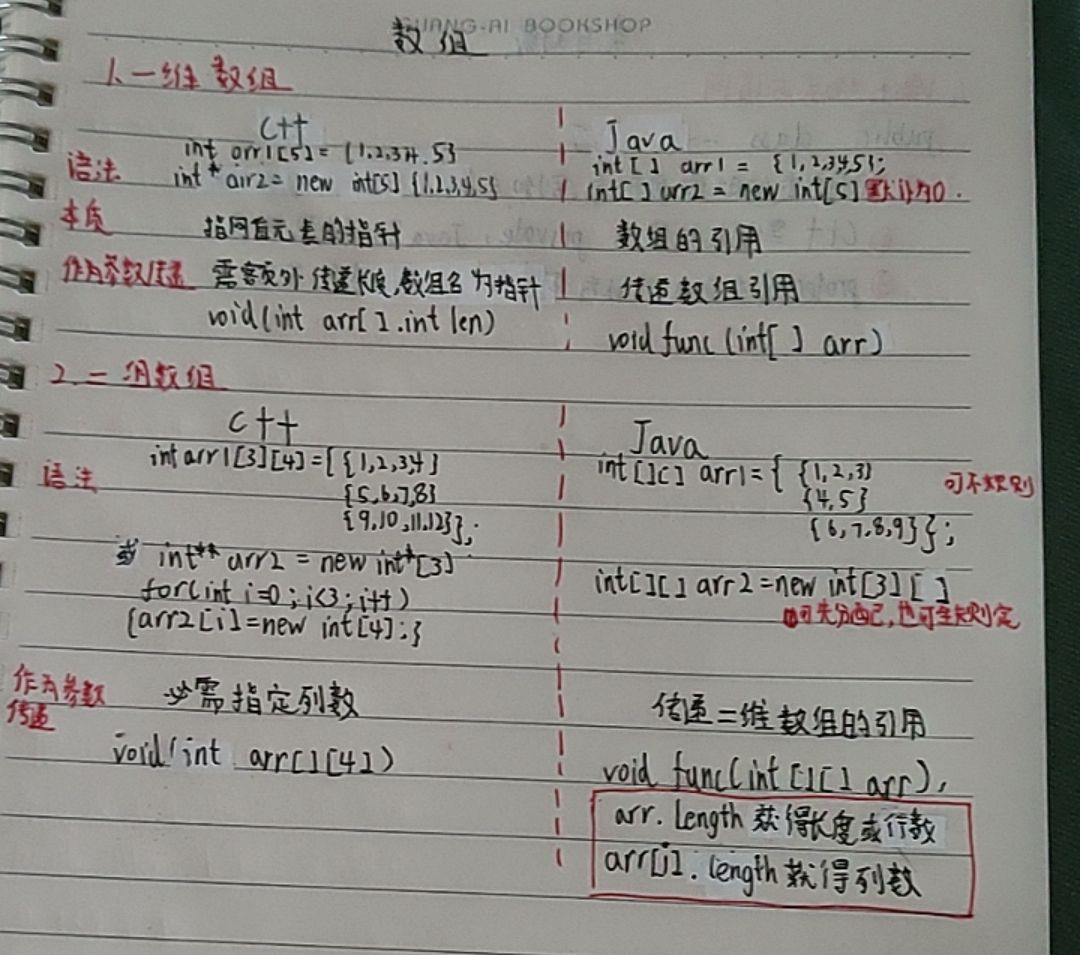 GUANG-AI BOOKSHOP
数组
1.一维数组
C++
Java
int arr1[5]={1,2,3,4.5}
int[] arr1 = {1,2,3,4,5};
语法
int* arr2=new int[5]{1,2,3,4,5}
int[] arr2=new int[5] 默认为0.
本质
指向首元素的指针
数组的引用
作为参数传递
需额外传递长度,数组名为指针
传递数组引用
void(int arr[].int len)
void func(int[] arr)
2.二维数组
C++
Java
int arr1[3][4]={{1,2,3,4}
int[][] arr1={{1,2,3}
可不规则
语法
{5,6,7,8}
{4,5}
{9,10,11,12}};
{6,7,8,9}};
或 int** arr2=new int*[3]
for(int i=0;i<3;i++)
int[][] arr2=new int[3][]
{arr2[i]=new int[4];}
可先分配,也可至规定
作为参数
传递
必需指定列数
传递二维数组的引用
void(int arr[][4])
void func(int[][] arr),
arr.length获得长度或行数
arr[i].length获得列数